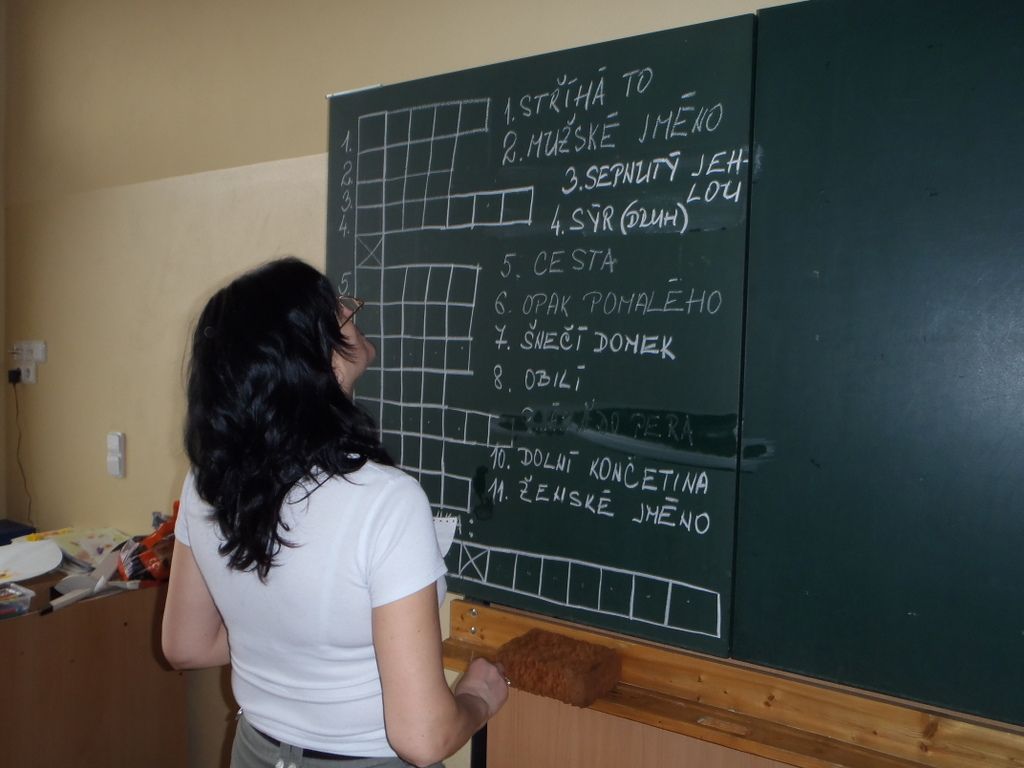 1.
2.
3.
4.
5.
1. STŘÍHÁ TO
2. MUŽSKÉ JMÉNO
3. SEPNUTÝ JEH-
LOU
4. SÝR (DRUH)
5. CESTA
6. OPAK POMALÉHO
7. ŠNEČÍ DOMEK
8. OBILÍ
PERA
10. DOLNÍ KONČETINA
11. ŽENSKÉ JMÉNO